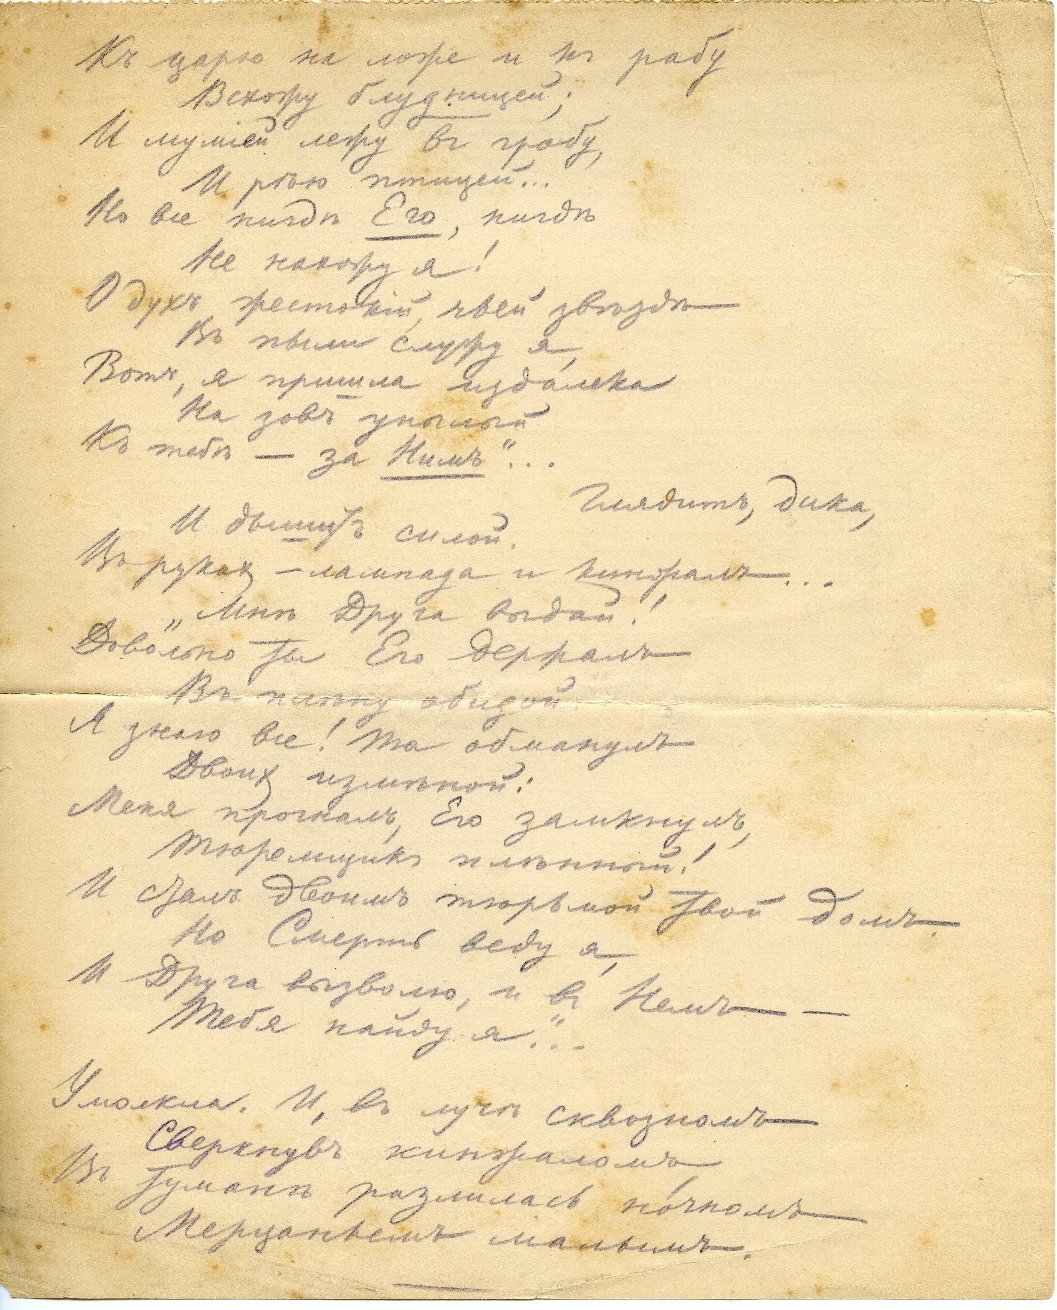 Къ царю на ложе и къ рабу
Вскожу блудницей;
И муміей лежу въ гробу,
И рѣю птицей...
Но все нигдѣ Его, нигдѣ
Не нахожу я!
О духъ жестокій, чьей звѣздѣ
Въ пыли служу я,
Вотъ, я пришла издалека
На зовъ унылый
Къ тебѣ — за Нимъ"...
Глядитъ, дика,
И дышитъ силой.
Въ рукахъ — лампада и кинжалъ...
„Мнѣ Друга выдай!
Довольно ты Его держалъ
Въ плѣну обидой.
Я знаю все! Ты обманулъ
Двоихъ измѣной:
Меня прогналъ, Его замкнулъ,
Тюремщикъ плѣнный!
И сталъ двоимъ тюрьмой твой домъ.
Но Смерть веду я,
И Друга вызволю, и въ Немъ —
Тебя найду я"...
Умолкла. И, въ лучѣ сквозномъ
Сверкнувъ кинжаломъ,
Въ туманѣ разлилась ночномъ
Мерцаньемъ малымъ.